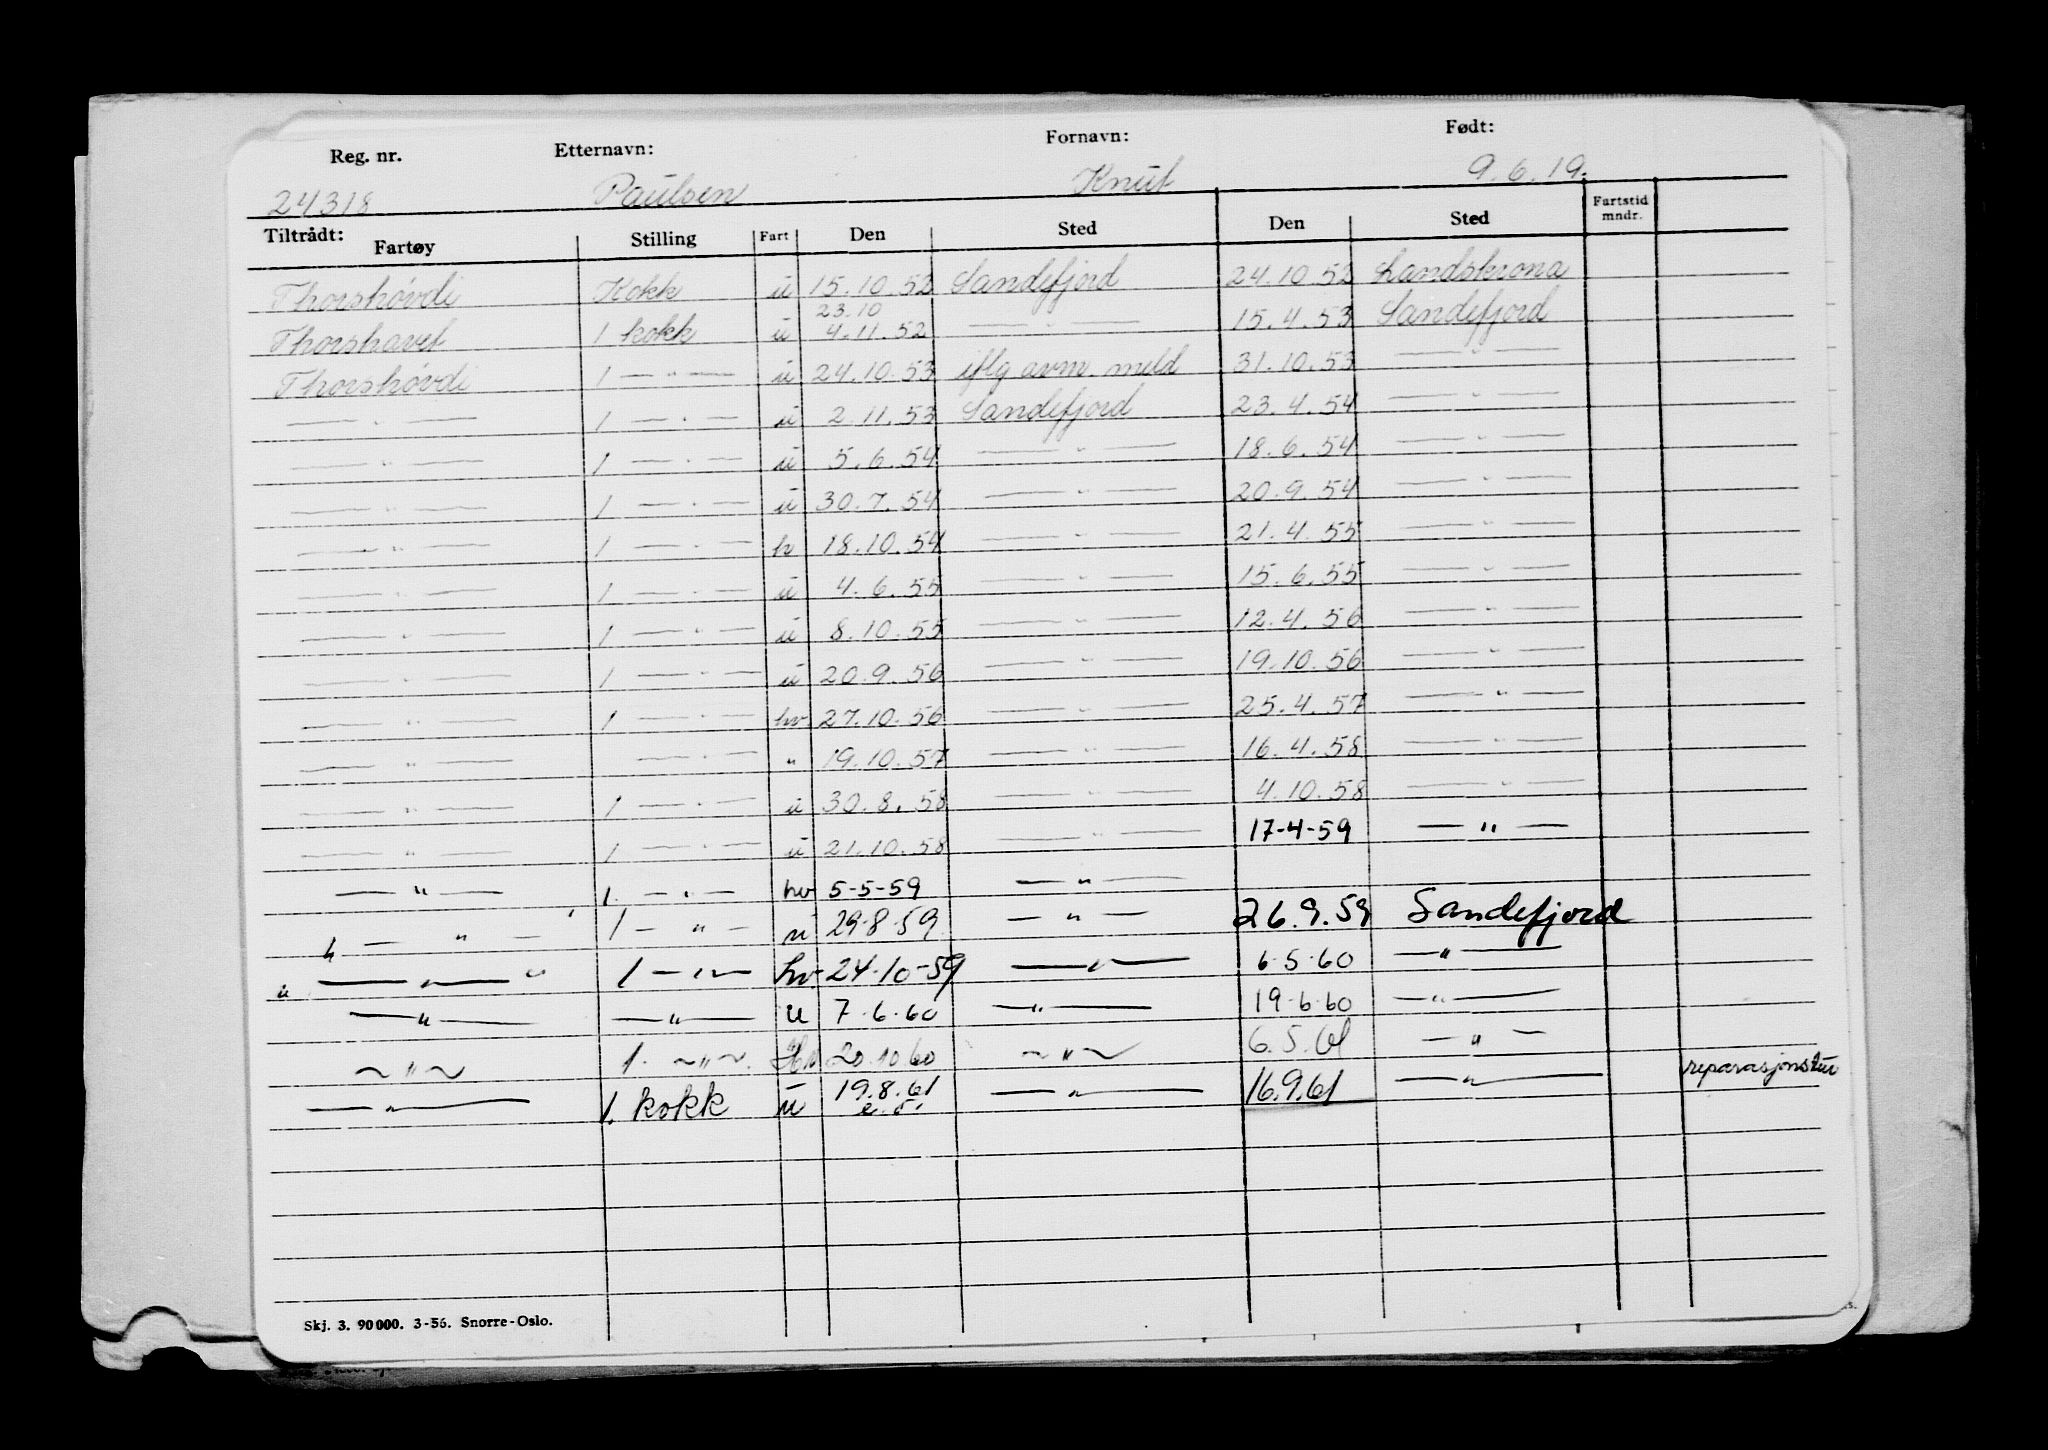 Reg. nr. Etternavn: Fornavn: Født:
24318 Paulsen Knut 9.6.19.
Tiltrådt: Fartøy Stilling Fart Den Sted Den Sted Fartstid mndr.
Thorshøvdi Kokk u 15.10.52 Sandefjord 24.10.52 Landskrona
23.10
Thorshavet 1 kokk u 4.11.52 — " — 15.4.53 Sandefjord
Thorshøvdi 1 — " — u 24.10.53 iflg avm. meld 31.10.53 — " —
— " — 1 — " — u 2.11.53 Sandefjord 23.4.54 — " —
— " — 1 — " — u 5.6.54 — " — 18.6.54 — " —
— " — 1 — " — u 30.7.54 — " — 20.9.54 — " —
— " — 1 — " — h 18.10.54 — " — 21.4.55 — " —
— " — 1 — " — u 4.6.55 — " — 15.6.55 — " —
— " — 1 — " — u 8.10.55 — " — 12.4.56 — " —
— " — 1 — " — u 20.9.56 — " — 19.10.56 — " —
— " — 1 — " — hv. 27.10.56 — " — 25.4.57 — " —
— " — — " — " 19.10.57 — " — 16.4.58 — " —
— " — 1 — " — u 30.8.58 — " — 4.10.58 — " —
— " — 1 — " — u 21.10.58 — " — 17-4-59 — " —
— " — 1. — " — hv 5-5-59 — " —
— " — 1 — " — u 29-8-59 — " — 26.9.59 Sandefjord
— " — 1 — " — hv. 24-10-59 — " — 6-5-60 — " —
— " — — " — u 7-6-60 — " — 19-6-60 — " —
~ " ~ 1. ~ " ~. Hv 20.10.60 ~ " ~ 6.5.61 — " —
— " — 1. kokk u 19.8.61 — " — 16.9.61 — " — reparasjonstur
e. o.
Skj. 3. 90000. 3-56. Snorre-Oslo.